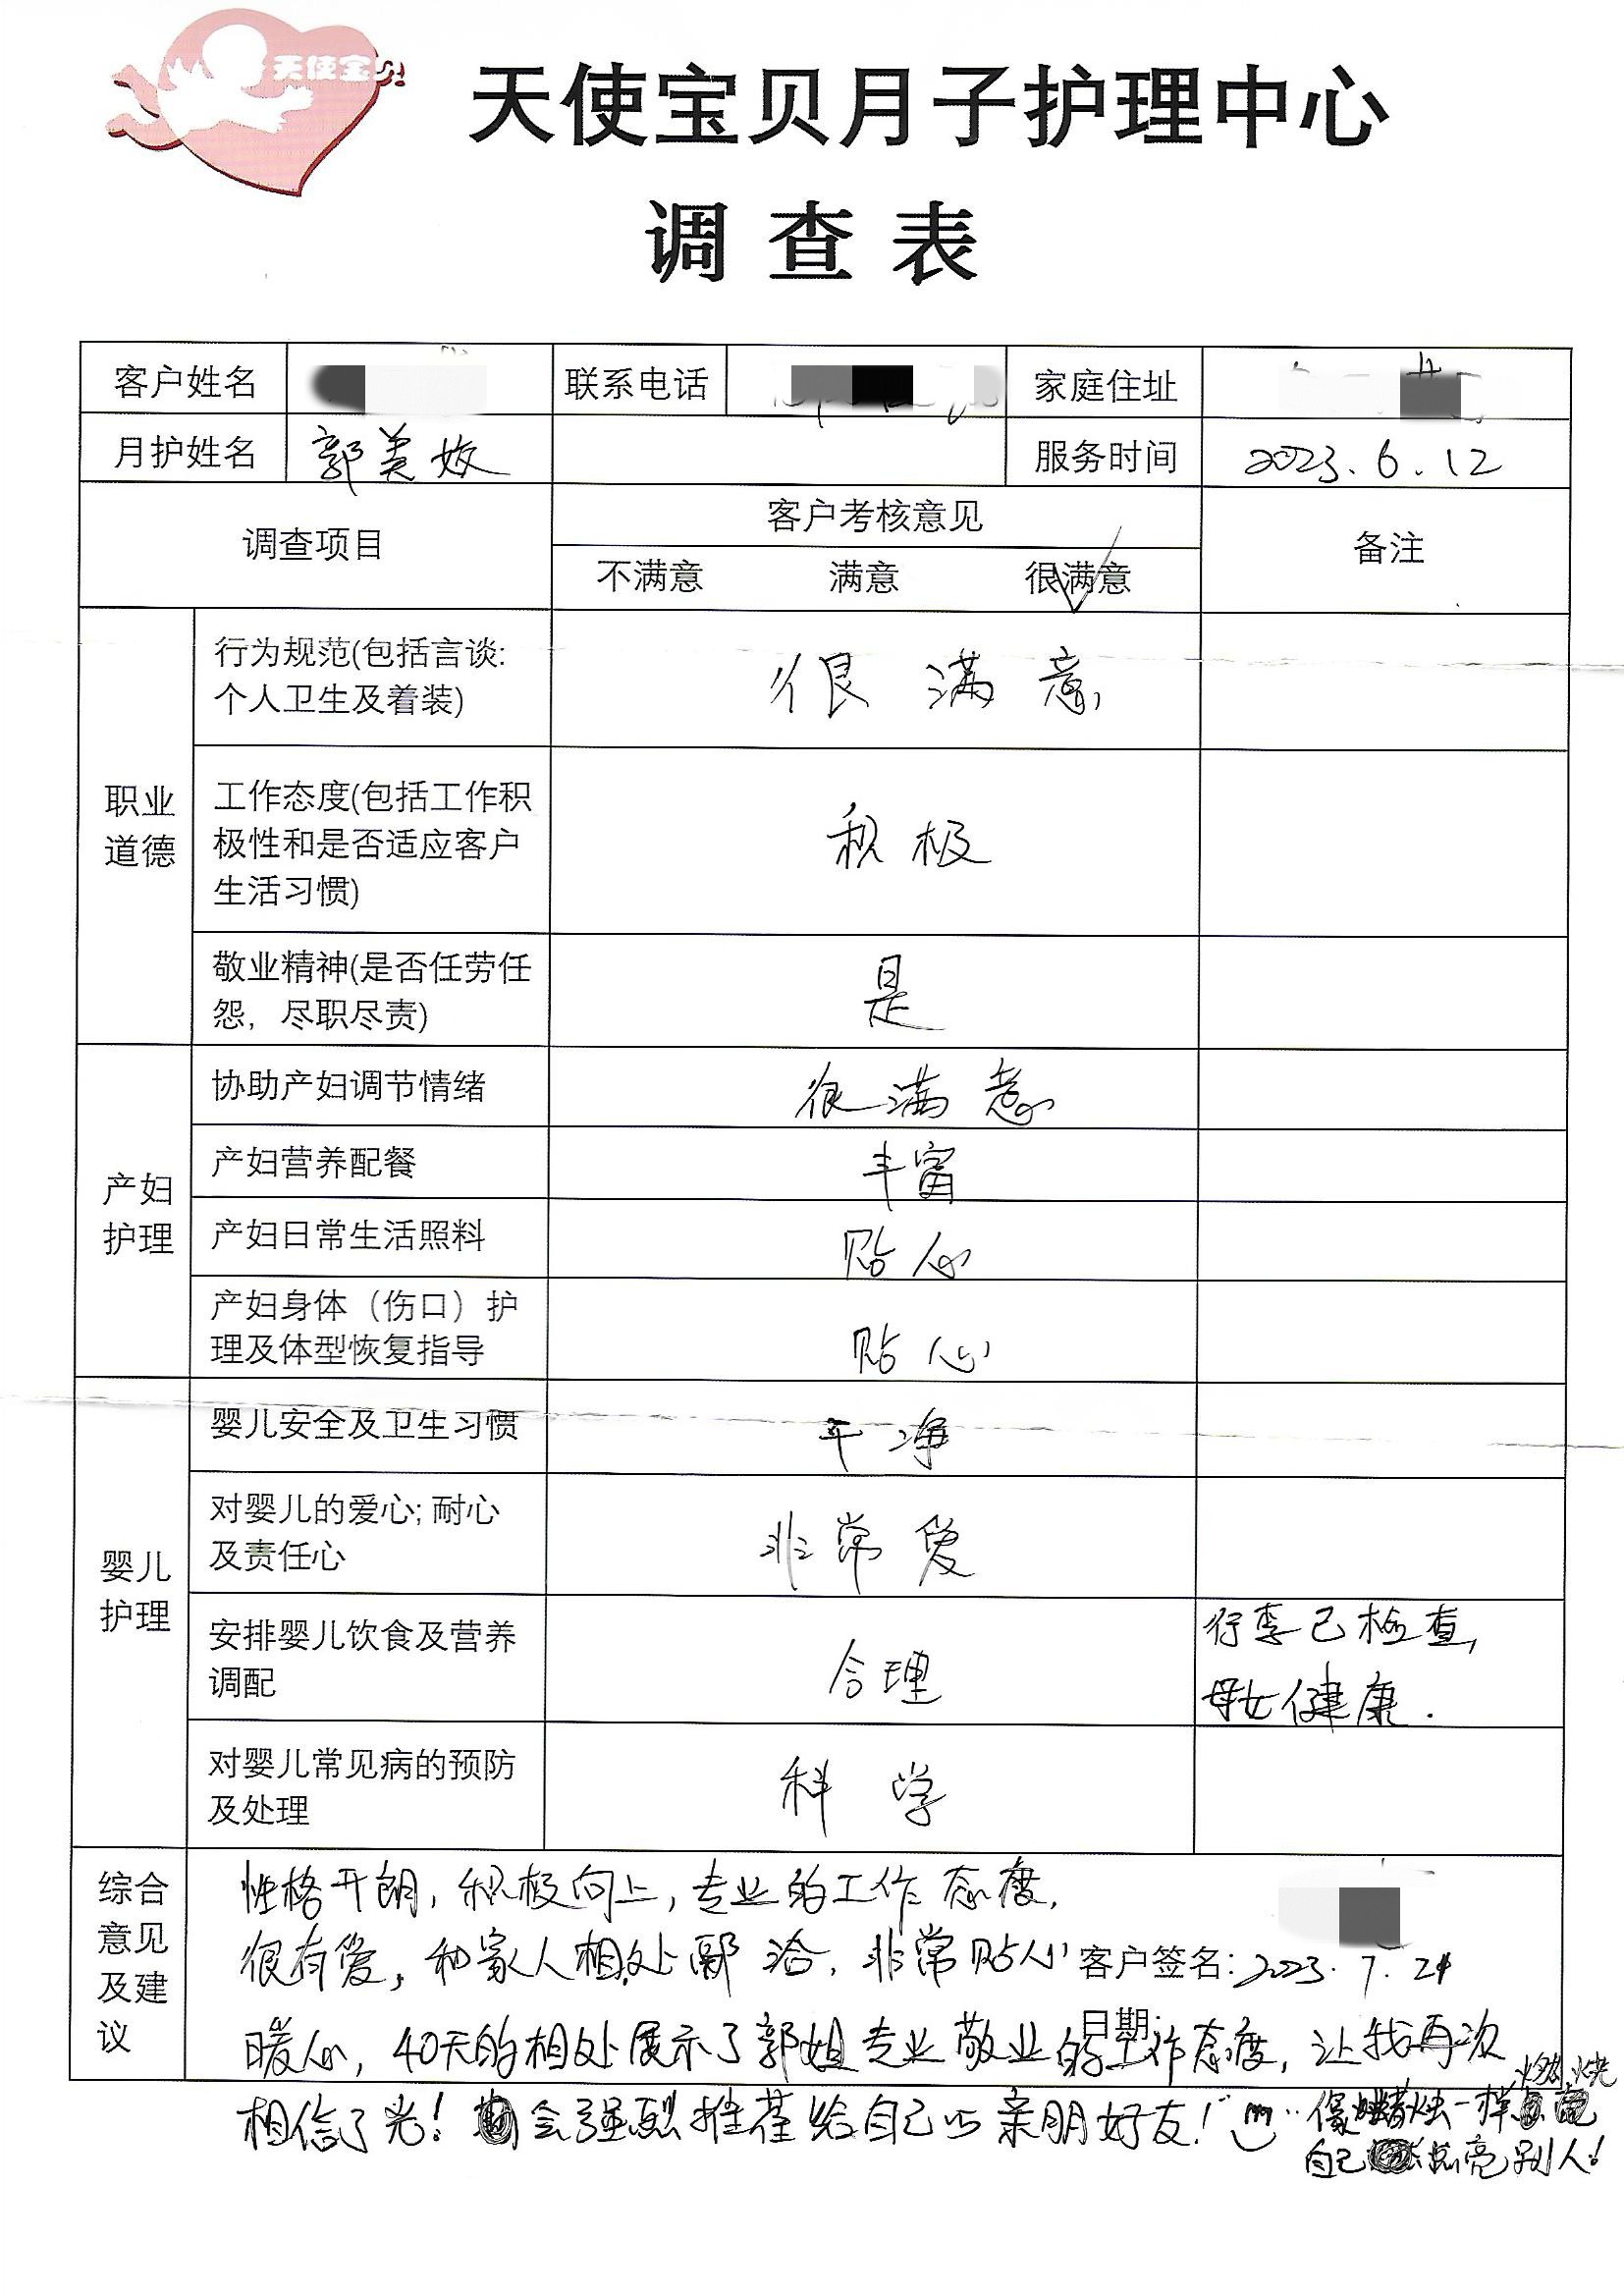 天使宝贝
天使宝贝月子护理中心
调查表
客户姓名 联系电话 家庭住址
月护姓名 郭美姣 服务时间 2023.6.12
调查项目 客户考核意见 备注
不满意 满意 很满意
职业道德
行为规范(包括言谈:
个人卫生及着装)
很满意,
工作态度(包括工作积
极性和是否适应客户
生活习惯)
积极
敬业精神(是否任劳任
怨，尽职尽责)
是
产妇护理
协助产妇调节情绪 很满意
产妇营养配餐 丰富
产妇日常生活照料 贴心
产妇身体（伤口）护
理及体型恢复指导
贴心
婴儿护理
婴儿安全及卫生习惯 干净
对婴儿的爱心; 耐心
及责任心
非常爱
安排婴儿饮食及营养
调配
合理
行李已检查,
母女健康.
对婴儿常见病的预防
及处理
科学
综合
意见
及建
议
性格开朗, 积极向上, 专业的工作态度,
很有爱, 和家人相处融洽, 非常贴心 客户签名: 2023.7.21
日期:
暖心, 40天的相处展示了郭姐专业敬业的工作态度, 让我再次
相信了光! 会强烈推荐给自己的亲朋好友! 像蜡烛一样燃烧
自己点亮别人!